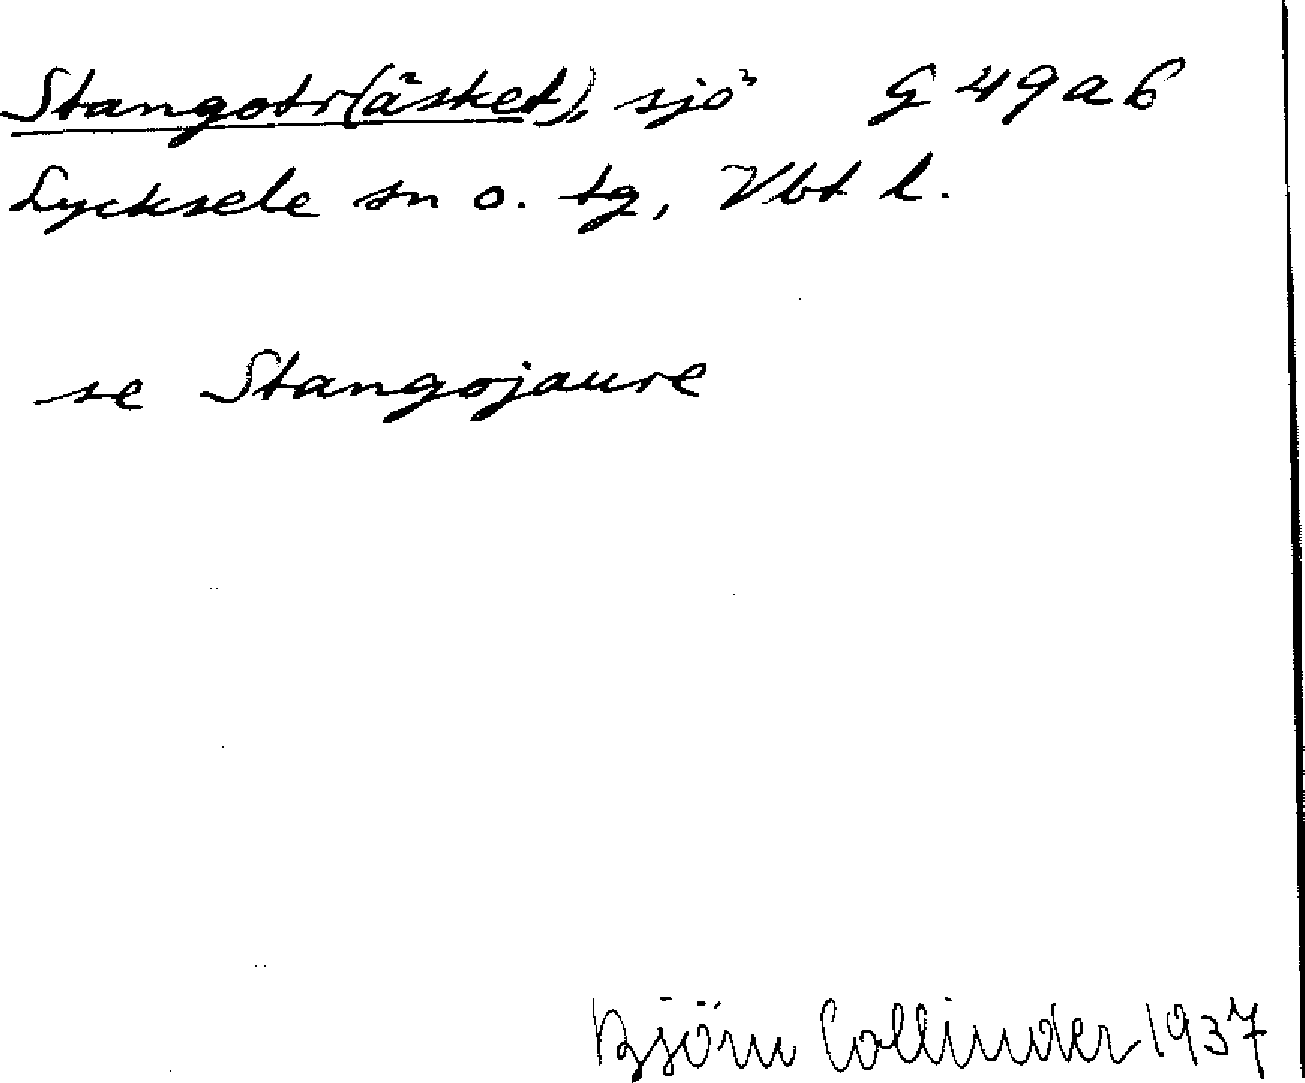 Stangotr(äsket), sjö G 49 a b
Lycksele sn o. tg, Vbt l.
se Stangojaure
Björn Collinder 1937